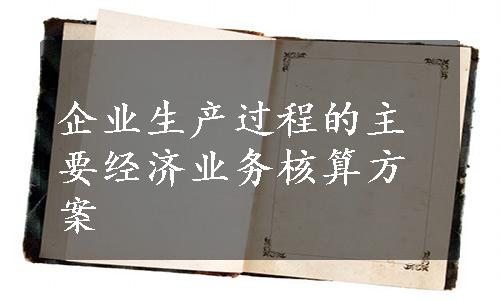 企业生产过程的主
要经济业务核算方
案